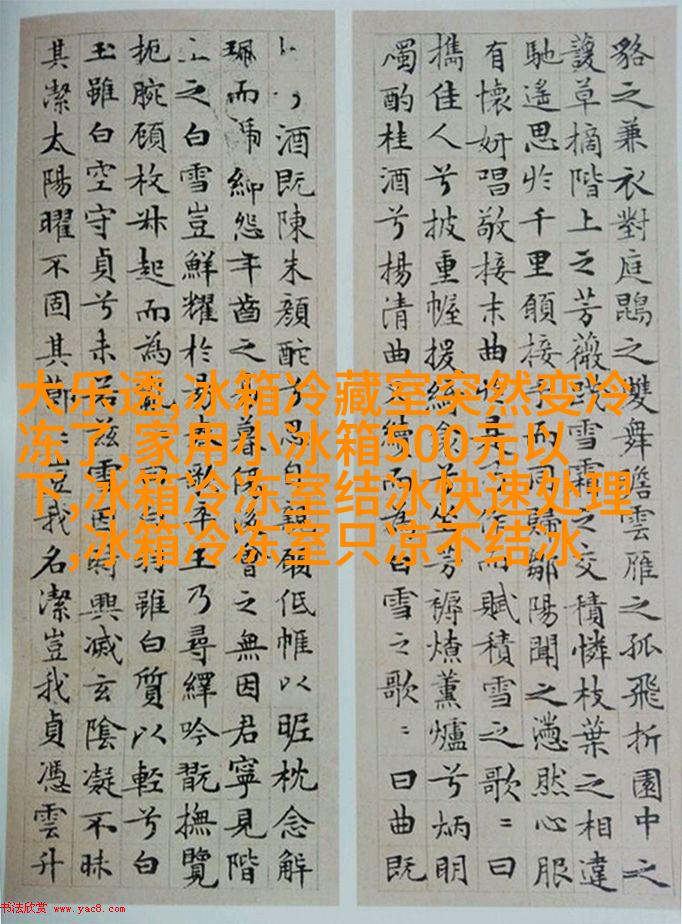 貉之兼衣對庭鵾之雙舞瞻雲雁之孤飛折園中之
草摘階上之芳薇踐雪霜之交積憐枝葉之相違
馳遥思於千里願接手而同歸鄒陽聞之懣然心服
有懷妍唱敬接末曲作而賦積雪之歌〻曰
攜佳人兮披重幄援綺衾兮坐芳褥燎薰爐兮炳明
燭酌桂酒兮揚清曲又續而為白雪之歌〻曰曲既
酒既陳朱顏酡兮思自親願低帷以昵枕念解
珮而褫紳怨年之暮傷後會之無因君寧見階
之白雪豈鮮耀於陽春歌卒王乃尋繹吟翫撫覽
扼腕顧枚叔起而為亂曰羽雖白質以輕兮白
玉雖白空守貞兮未若茲雪因時興滅玄陰凝不昧
其潔太陽曜不固其節〻豈我名潔豈我貞憑雲升
大乐透,冰箱冷藏室突然变冷
冻了,家用小冰箱500元以
下,冰箱冷冻室结冰快速处理
,冰箱冷冻室只凉不结冰
书法欣赏 www.yac8.com